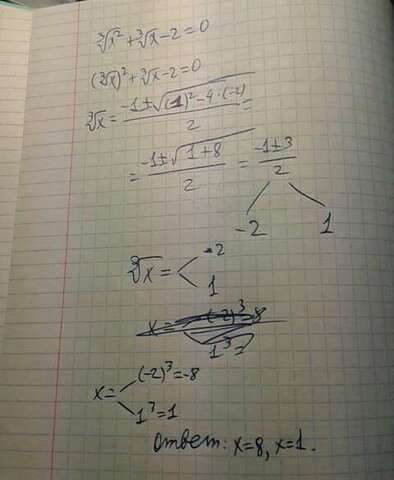 ∛x² + ∛x - 2 = 0
(∛x)² + ∛x - 2 = 0
∛x = (-1 ± √((1)² - 4·(-2)))/2 =
= (-1 ± √(1+8))/2 = (-1 ± 3)/2
-2 1
∛x = < -2
1
x = (-2)³ = 8
1³ =
x = < (-2)³ = -8
1³ = 1
Ответ: x = 8, x = 1.